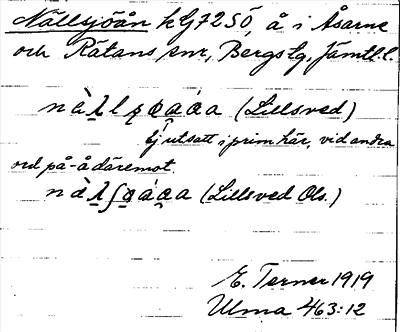 Nällsjöån kGf7250, å i Åsarne
och Rätans snr, Bergs tg, Jämtl. l.
(Lillsved)
Ej utsatt i prim här, vid andra
ord på -å däremot.
(Lillsved Ols.)
E. Terner 1919
Ulma 463:12